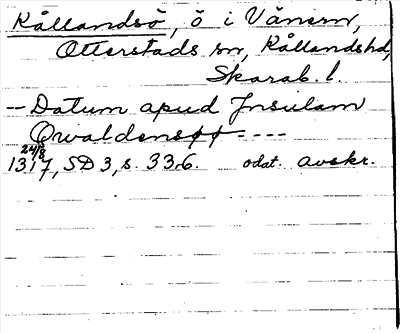 Kållandsö, ö i Vänern,
Otterstads sn, Kållands hd,
Skarab. l.
-- Datum apud Insulam
Qwaldensøø ----
24/8
1317, SD 3, s. 336. odat. avskr.